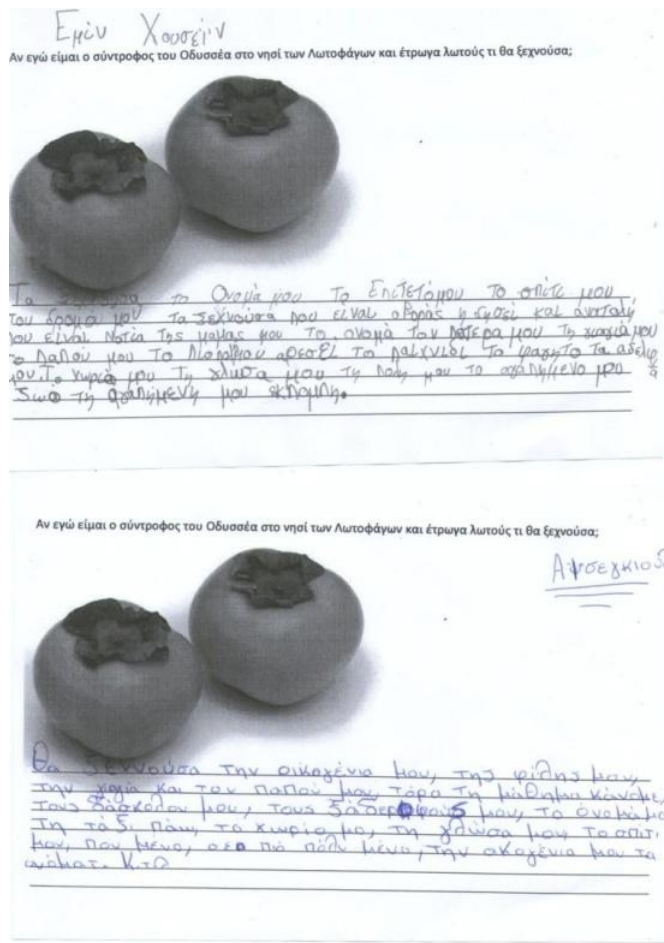 Εμίν Χουσεΐν
Αν εγώ είμαι ο σύντροφος του Οδυσσέα στο νησί των Λωτοφάγων και έτρωγα λωτούς τι θα ξεχνούσα;
Τα το Ονομά μου Το Επιτετόμου Το σπίτι μου
του δρόμα μου τα ξεχνούσα που είναι οβοράς η δησεί και ανατολή
που είναι Νοτία Της μαμας μου Το ονομά του πατερα μου Τη γιαγιά μου
το παπού μου Το αρεσεί το παιχνιδι το φαγητο τα αδελφ
μου Το χωριο μου Τη γλωσα μου τη μου το αγαπημενο μου
ζωο τη αγαπημενη μου εκπομπη.
Αν εγώ είμαι ο σύντροφος του Οδυσσέα στο νησί των Λωτοφάγων και έτρωγα λωτούς τι θα ξεχνούσα;
Αψσεγκιού
Θα ξεχνούσα την οικογένια μου, της φίλης μου,
την γιαγιά και τον παπού μου, τόρα τη μάθημα κάνομε,
τους δάσκαλου μου, τους μου, το όνομά μο
Τη τάξι πάω, το χωρίο μο, τη γλώσα μου, το σπίτι
μου, που μένο, σεο πιό πόλυ μένο, την οκογένια μου τα
ονόματ. κτλ